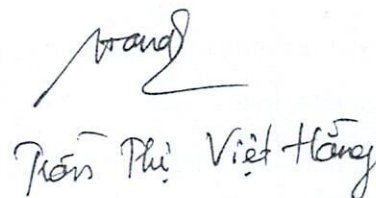 Hang
Trần Thị Việt Hằng